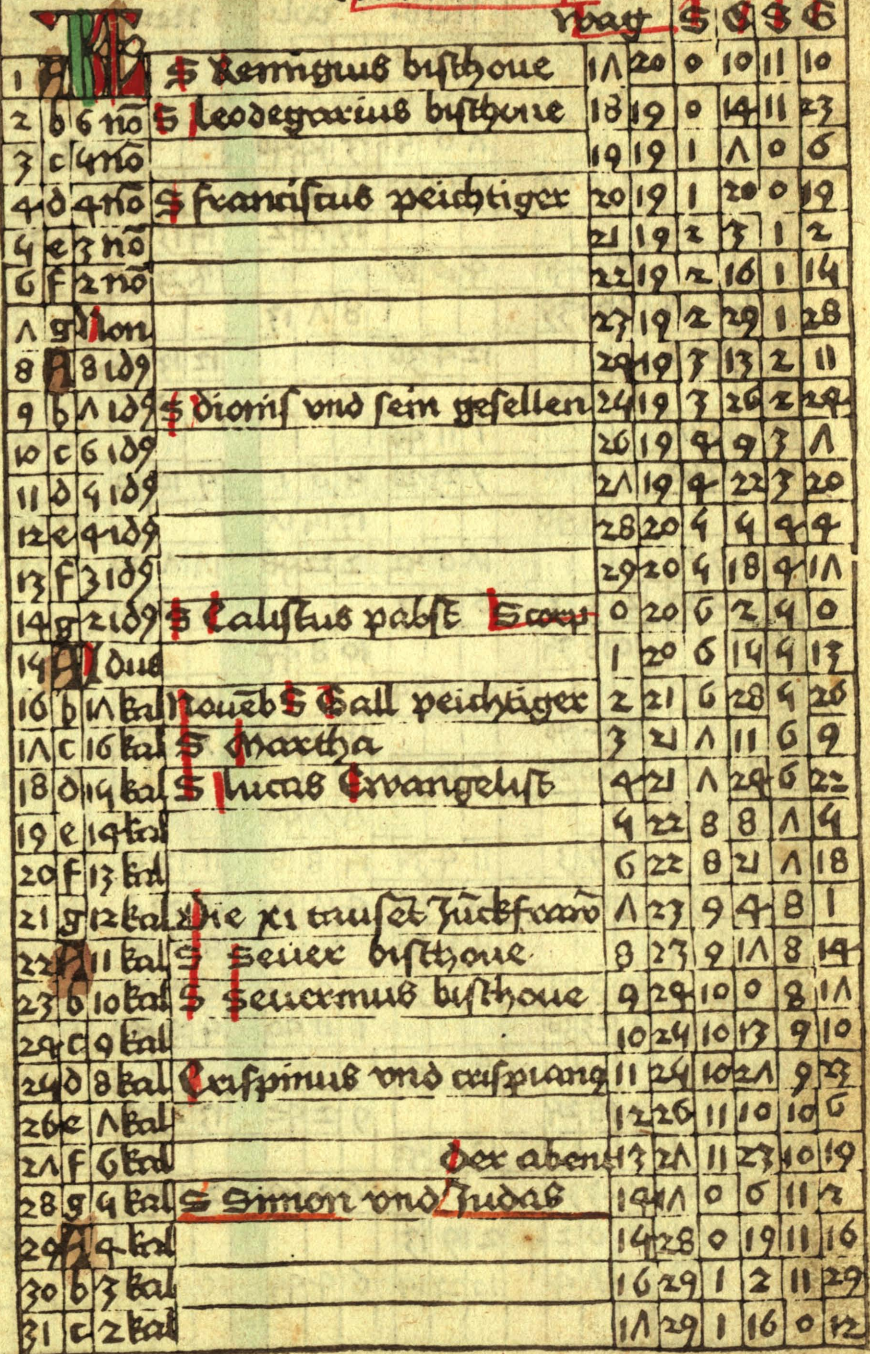 wag S G S G
1 A KL S Remigius bischoue 17 20 0 10 11 10
2 b 6 nō S leodegarius bischoue 18 19 0 14 11 23
3 c 5 nō 19 19 1 7 0 6
4 d 4 nō S franciscus peichtiger 20 19 1 20 0 19
5 e 3 nō 21 19 2 3 1 2
6 f 2 nō 22 19 2 16 1 15
7 g Non 23 19 2 29 1 28
8 A 8 idꝰ 24 19 3 13 2 11
9 b 7 idꝰ S dionis vnd sein gesellen 25 19 3 26 2 24
10 c 6 idꝰ 26 19 4 9 3 7
11 d 5 idꝰ 27 19 4 22 3 20
12 e 4 idꝰ 28 20 5 5 4 4
13 f 3 idꝰ 29 20 5 18 4 17
14 g 2 idꝰ S Calistus pabst Scorp 0 20 6 2 5 0
15 A Idus 1 20 6 15 5 13
16 b 17 kal nouēb S Gall peichtiger 2 21 6 28 5 26
17 c 16 kal S Martha 3 21 7 11 6 9
18 d 15 kal S lucas Ewangelist 4 21 7 24 6 22
19 e 14 kal 5 22 8 8 7 5
20 f 13 kal 6 22 8 21 7 18
21 g 12 kal Die xi tausēt Jūckfraw̄ 7 23 9 4 8 1
22 A 11 kal S Seuer bischoue 8 23 9 17 8 14
23 b 10 kal S Seuerinus bischoue 9 24 10 0 8 17
24 c 9 kal 10 25 10 13 9 10
25 d 8 kal Crispinus vnd crispianꝰ 11 25 10 27 9 23
26 e 7 kal 12 26 11 10 10 6
27 f 6 kal der abent 13 27 11 23 10 19
28 g 5 kal S Simon vnd Judas 14 17 0 6 11 2
29 A 4 kal 15 28 0 19 11 16
30 b 3 kal 16 29 1 2 11 29
31 c 2 kal 17 29 1 16 0 12